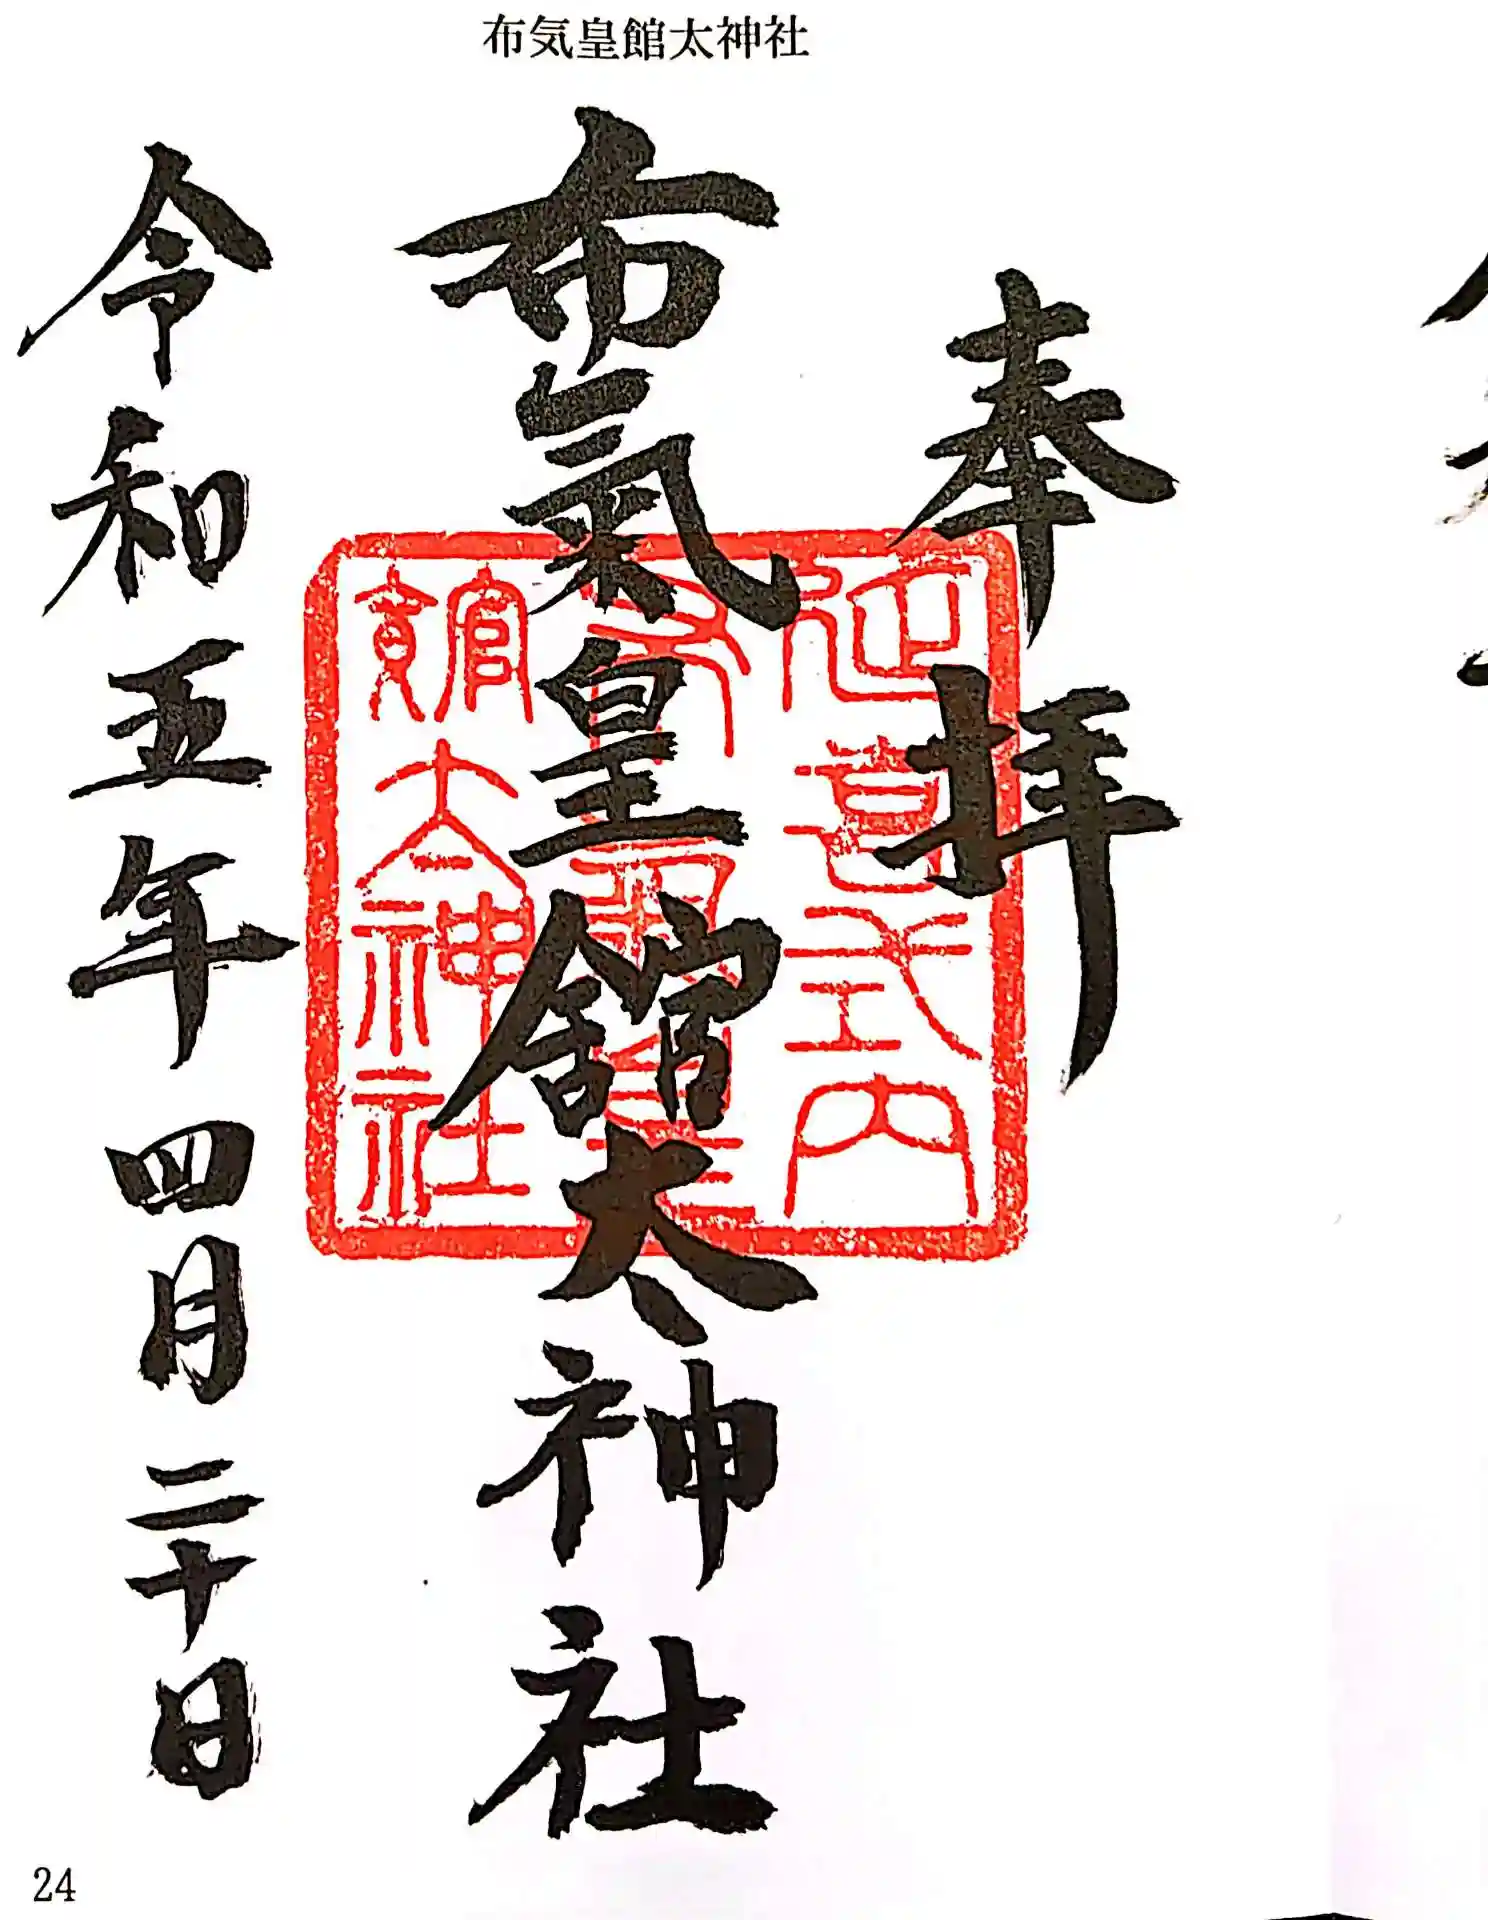 布気皇館太神社
奉拝
布氣皇舘太神社
令和五年四月二十日
延喜式内
館大神社
24